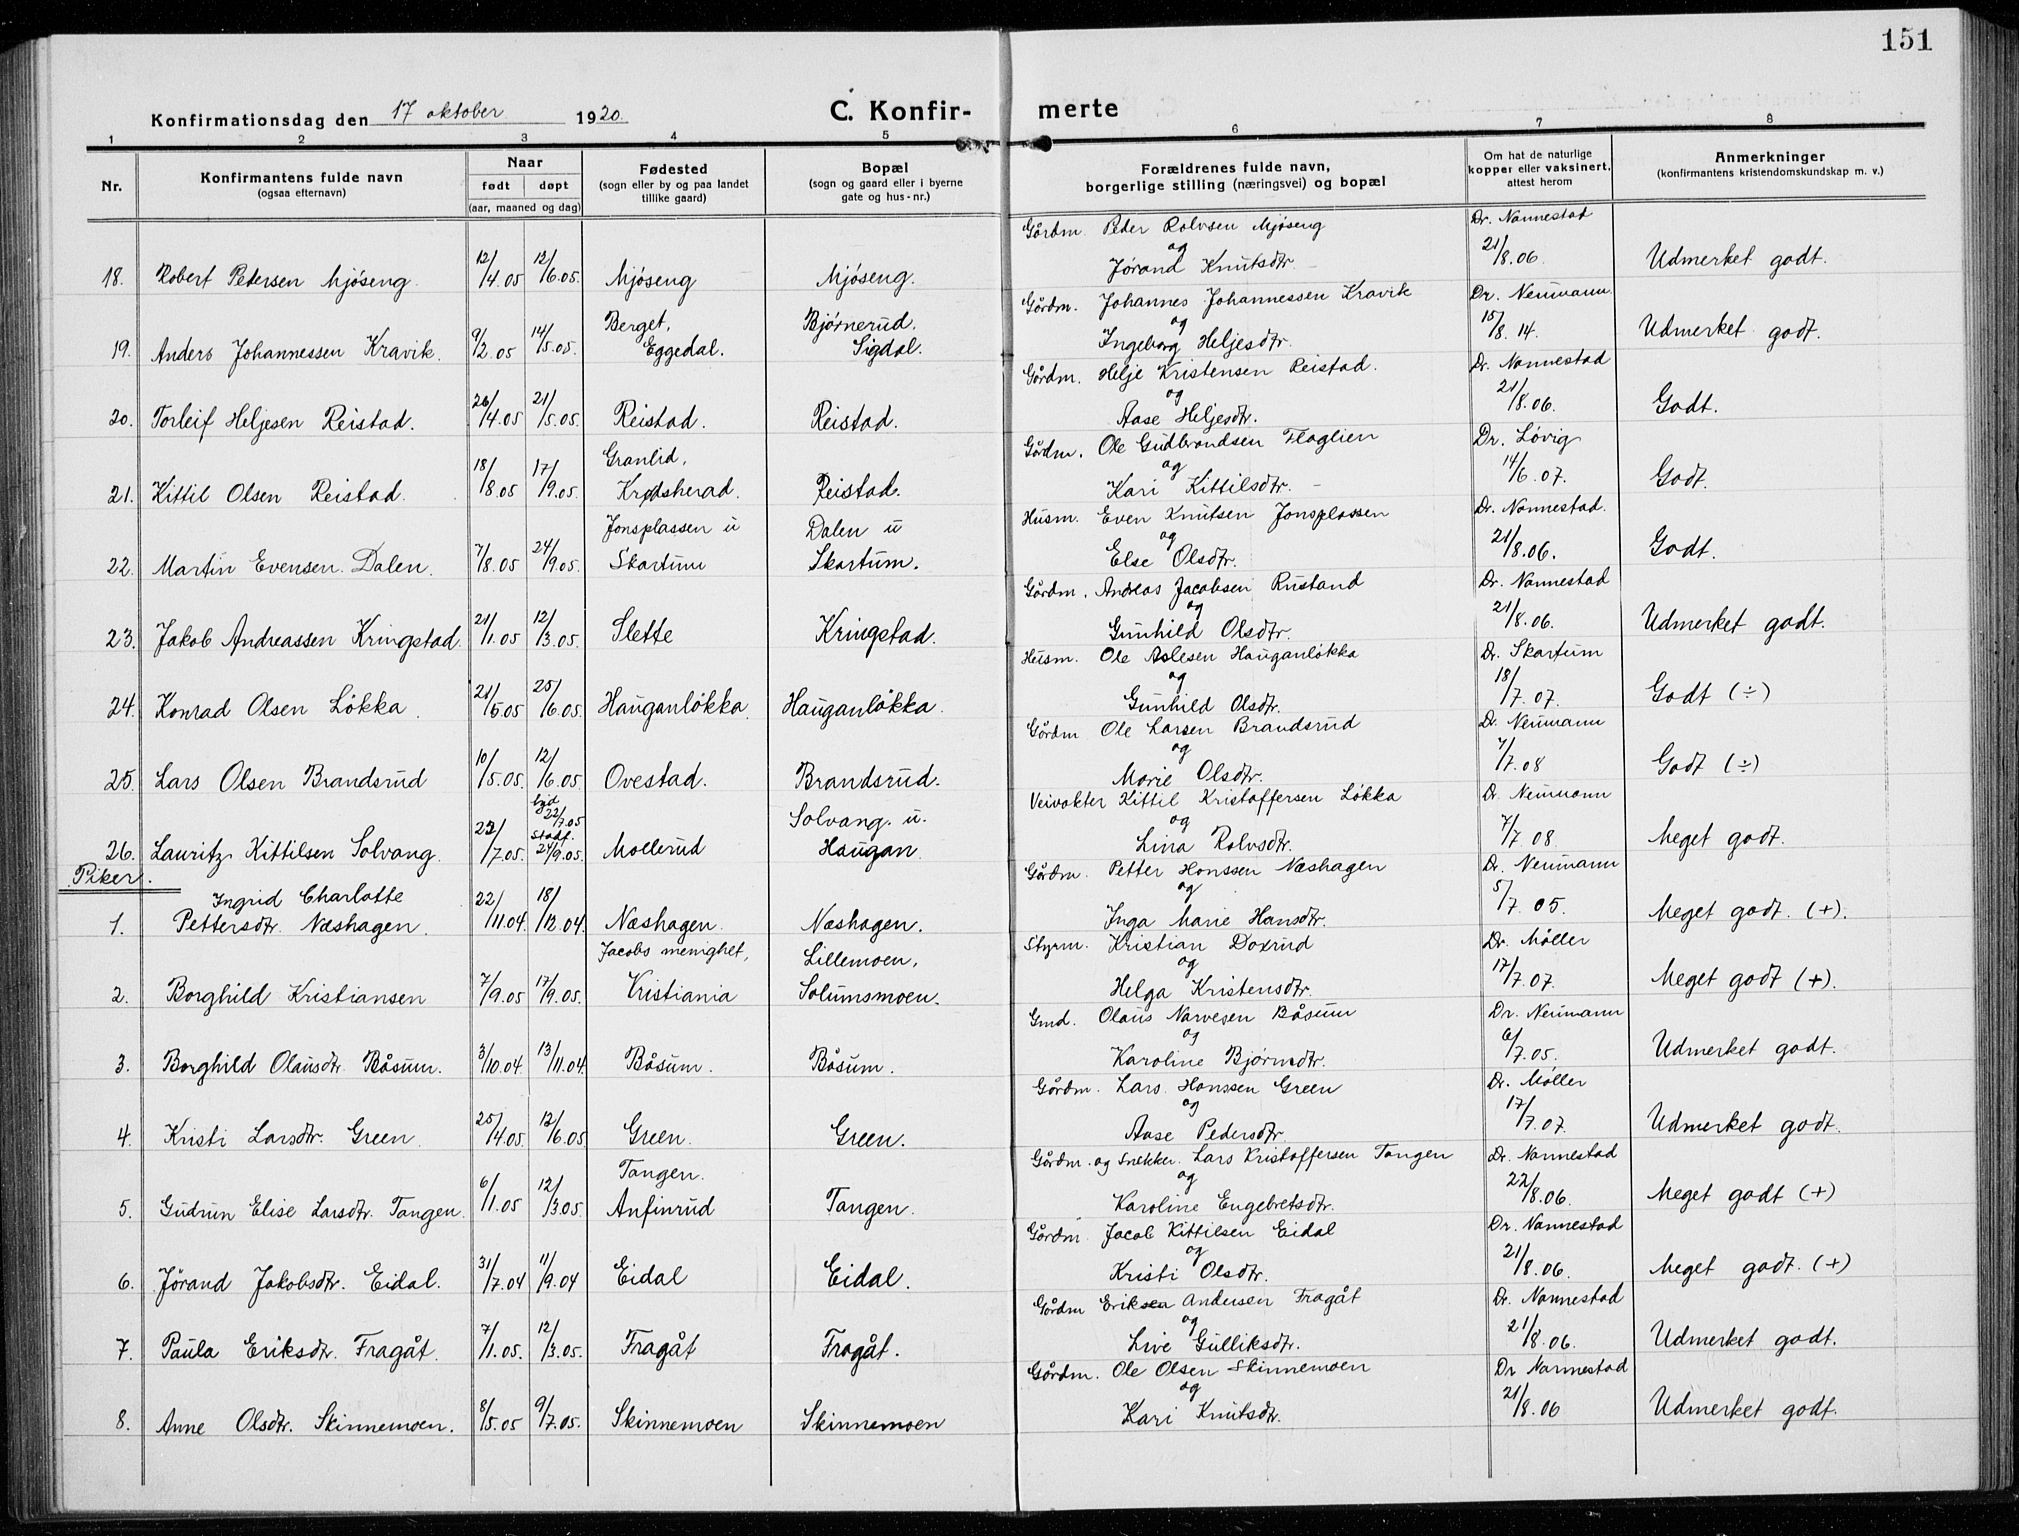 151
Konfirmationsdag den 17 oktober 1920. C. Konfirmerte
1 2 3 4 5 6 7 8
Nr. | Konfirmantens fulde navn (ogsaa efternavn) | Naar født døpt (aar, maaned og dag) | Fødested (sogn eller by og paa landet tillike gaard) | Bopæl (sogn og gaard eller i byerne gate og hus-nr.) | Forældrenes fulde navn, borgerlige stilling (næringsvei) og bopæl | Om hat de naturlige kopper eller vaksinert, attest herom | Anmerkninger (konfirmantens kristendomskundskap m. v.)
18. Robert Pedersen Mjøseng. 12/4.05 12/6.05. Mjøseng Mjøseng. Gårdm. Peder Rolvsen Mjøseng og Jørand Knutsdtr. Dr. Nannestad 21/8.06. Udmerket godt.
19. Anders Johannessen Kravik. 9/2.05 14/5.05. Berget, Eggedal. Bjørnerud. Sigdal. Gårdm. Johannes Johannessen Kravik og Ingeborg Heljesdtr. Dr. Neumann 15/8.14. Udmerket godt.
20. Torleif Heljesen Reistad. 26/4.05 21/5.05. Reistad. Reistad. Gårdm. Helje Kristensen Reistad. og Aase Heljesdtr. Dr. Nannestad 21/8.06. Godt.
21. Kittil Olsen Reistad. 18/8.05 17/9.05. Granlid, Krødsherad. Reistad. Gårdm. Ole Gudbrandsen Flaglien og Kari Kittilsdtr. Dr. Løvig 14/6.07. Godt.
22. Martin Evensen Dalen. 7/8.05 24/9.05. Jonsplassen u Skartum Dalen u Skartum. Husm. Even Knutsen Jonsplassen og Else Olsdtr. Dr. Nannestad. 21/8.06. Godt.
23. Jakob Andreassen Kringstad. 21/1.05 12/3.05. Slette Kringstad. Gårdm. Andreas Jacobsen Rustand og Gunhild Olsdtr. Dr. Nannestad 21/8.06. Udmerket godt.
24. Konrad Olsen Løkka. 21/5.05 25/6.05. Hauganløkka. Hauganløkka. Husm. Ole Aslesen Hauganløkka og Gunhild Olsdtr. Dr. Skartum 18/7.07. Godt (÷)
25. Lars Olsen Brandsrud 10/5.05. 12/6.05 Ovestad. Brandsrud. Gårdm Ole Larsen Brandsrud og Marie Olsdtr. Dr. Neumann 7/7.08 Godt (÷)
26. Lauritz Kittilsen Solvang. 22/7.05. 22/7.05 Stadf. 24/9.05. Mollerud Solvang. u. Haugan. Veivokter Kittil Kristoffersen Løkka og Lina Rolvsdtr. Dr. Neumann 7/7 08. Meget godt.
Piker.
1. Ingrid Charlotte Pettersdtr. Næshagen. 22/11.04. 18/12.04. Næshagen. Næshagen. Gårdm. Petter Hanssen Næshagen og Inga Marie Hansdtr. Dr. Neumann 5/7.05. Meget godt. (+).
2. Borghild Kristiansen 7/9.05 17/9.05. Jacobs menighet, Kristiania Lillemoen, Solumsmoen. Styrm. Kristian Doxrud og Helga Kristensdtr. Dr. Møller 17/7.07. Meget godt (+).
3. Borghild Olausdtr. Båsum. 3/10.04. 13/11.04. Båsum. Båsum. Gmd. Olaus Narvesen Båsum og Karoline Bjørnsdtr. Dr. Neumann 6/7.05. Udmerket godt.
4. Kristi Larsdtr. Green. 25/4.05. 12/6.05 Green. Green. Gårdm. Lars Hanssen Green og Aase Pedersdtr. Dr. Møller 17/7.07. Udmerket godt.
5. Gudrun Elise Larsdtr. Tangen. 6/1.05 12/3.05. Tangen. Anfinrud Tangen. Gårdm. og Snekker. Lars Kristoffersen Tangen og Karoline Engebretsdtr. Dr. Nannestad 22/8.06. Meget godt (+)
6. Jørand Jakobsdtr. Eidal. 31/7.04 11/9.04 Eidal Eidal. Gårdm. Jacob Kittilsen Eidal og Kristi Olsdtr. Dr. Nannestad 21/8.06. Meget godt. (+)
7. Paula Eriksdtr. Fragåt. 7/1.05. 12/3.05. Fragåt Fragåt. Gårdm Eriksen Andersen Fragåt og Live Gulliksdtr. Dr. Nannestad 21/8.06. Udmerket godt.
8. Anne Olsdtr. Skinnemoen. 8/5.05 9/7.05. Skinnemoen Skinnemoen Gårdm. Ole Olsen Skinnemoen og Kari Knutsdtr. Dr Nannestad 21/8.06 Udmerket godt.